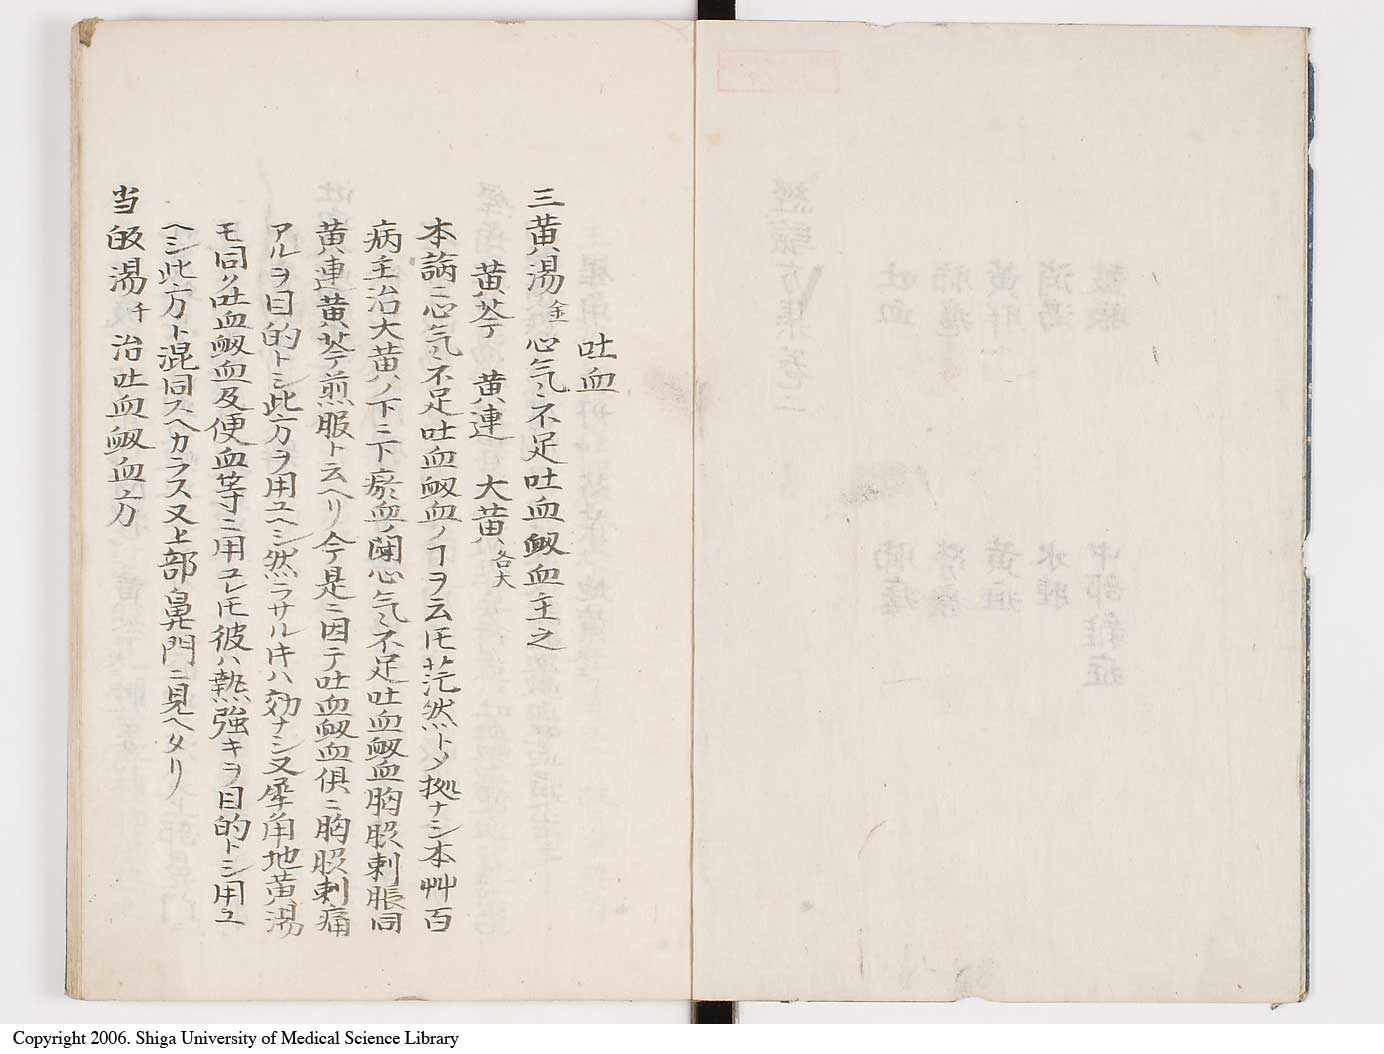 吐血
三黄湯 金 心気不足吐血衂血主之
黄芩 黄連 大黄 各大
本論ニ心気不足吐血衂血ノヿヲ云𪜈茫然トメ拠ナシ本艸百
病主治大黄ノ下ニ下瘀血ノ閑心気不足吐血衂血胸脇刺脹同
黄連黄芩煎服ト云ヘリ今是ニ因テ吐血衂血倶ニ胸脇刺痛
アルヲ目的トシ此方ヲ用ユヘシ然ラサルキハ効ナシ又犀角地黄湯
モ同ク吐血衂血及便血等ニ用ユレ𪜈彼ハ熱強キヲ目的トシ用ユ
ヘシ此方ト混同スヘカラス又上部鼻門ニ見ヘタリ
当皈湯 千 治吐血衂血方
Copyright 2006. Shiga University of Medical Science Library